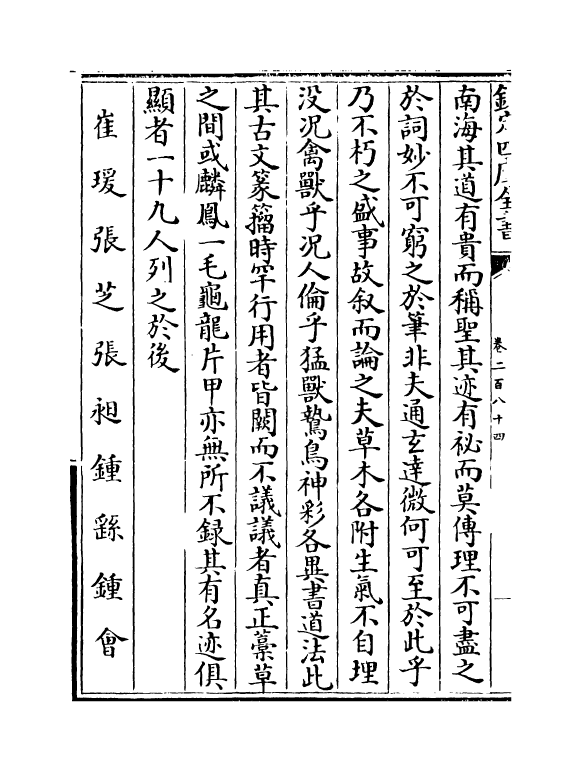 欽定四庫全書
卷二百八十四
南海其道有貴而稱聖其迹有祕而莫傳理不可盡之
於詞妙不可窮之於筆非夫通玄達微何可至於此乎
乃不朽之盛事故叙而論之夫草木各附生氣不自埋
没况禽獸乎况人倫乎猛獸鷙鳥神彩各異書道法此
其古文篆籀時罕行用者皆闕而不議議者真正藁草
之間或麟鳳一毛龜龍片甲亦無所不録其有名迹俱
顯者一十九人列之於後
崔瑗張芝張昶鍾繇鍾會